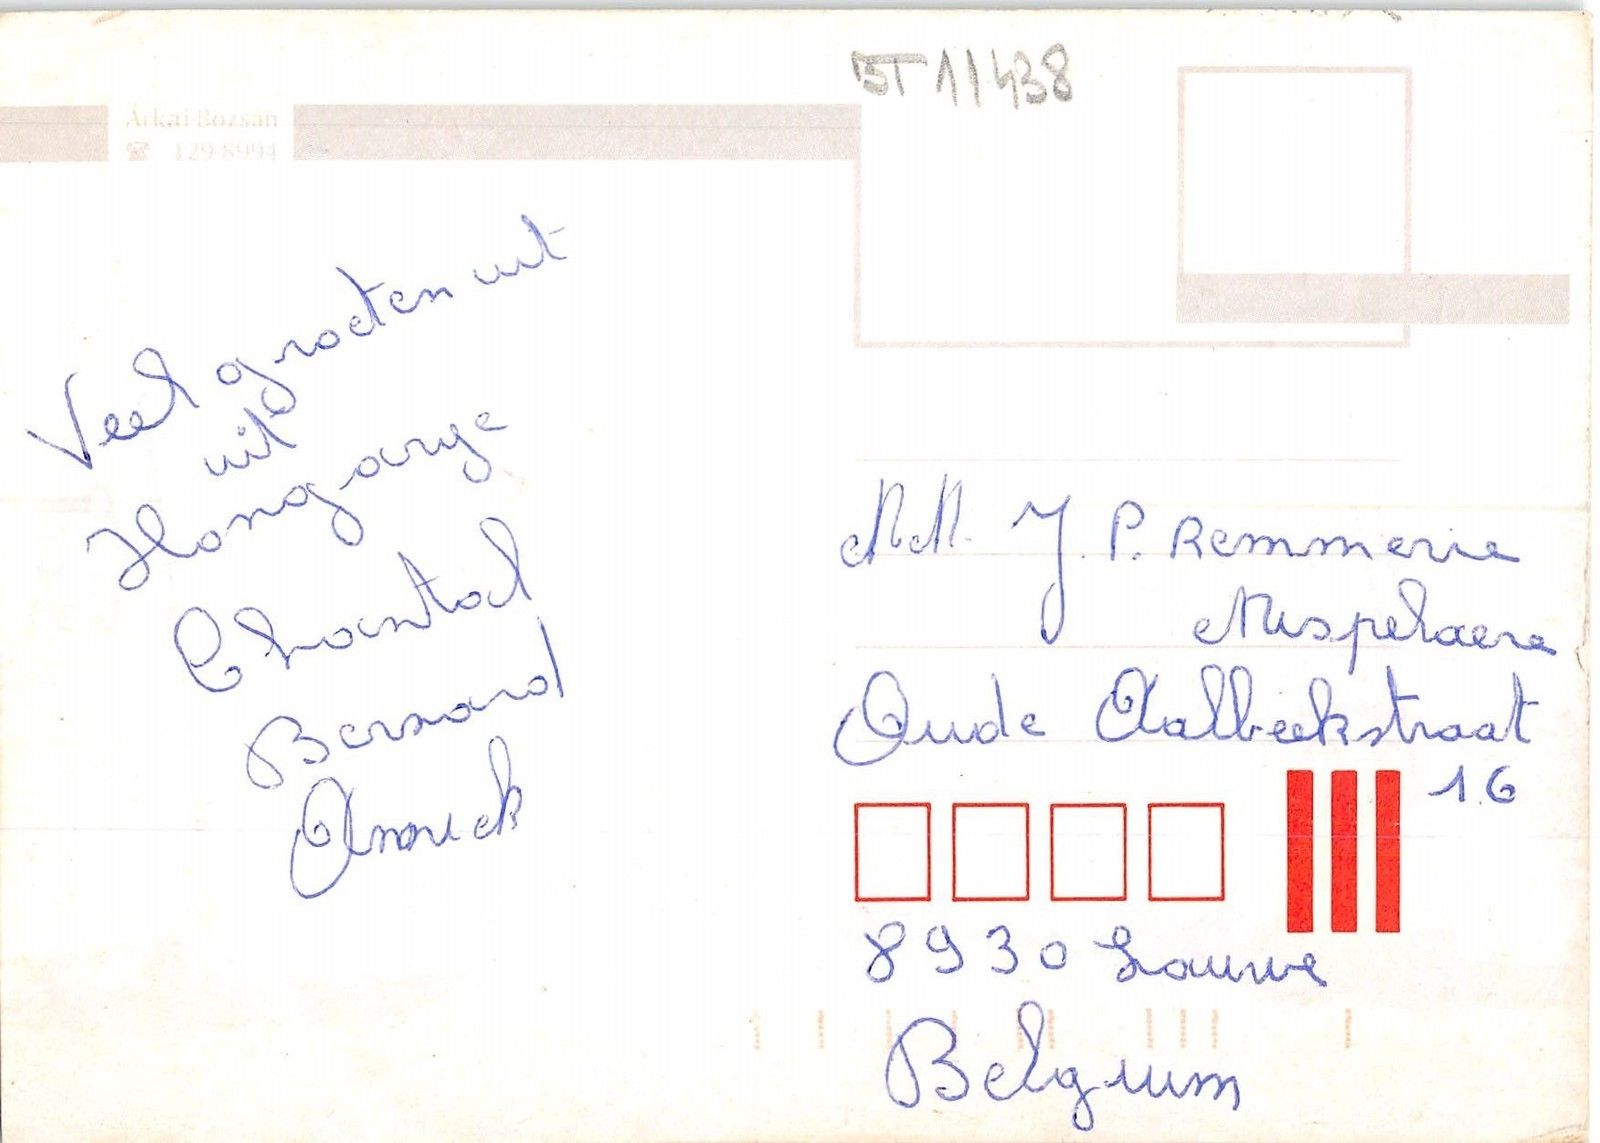 BT 11438
Árkai-Bozsán
☎ 129-8994
Veel groeten uit
uit
Hongarye
Chantal
Bernard
Anouck
MM. J. P. Remmerie
Mispelaere
Oude Aalbeekstraat
16
8930 Lauwe
Belgium